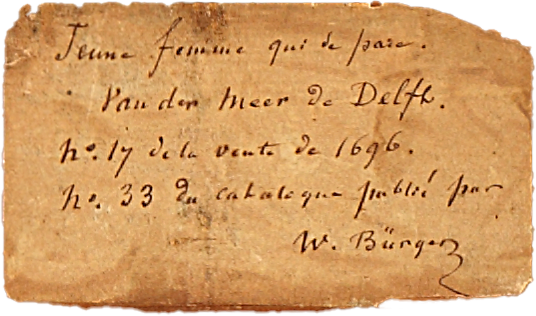 Jeune femme qui se pare.
Van der Meer de Delft.
No. 17 de la vente de 1696.
No. 33 du catalogue publié par
W. Bürger